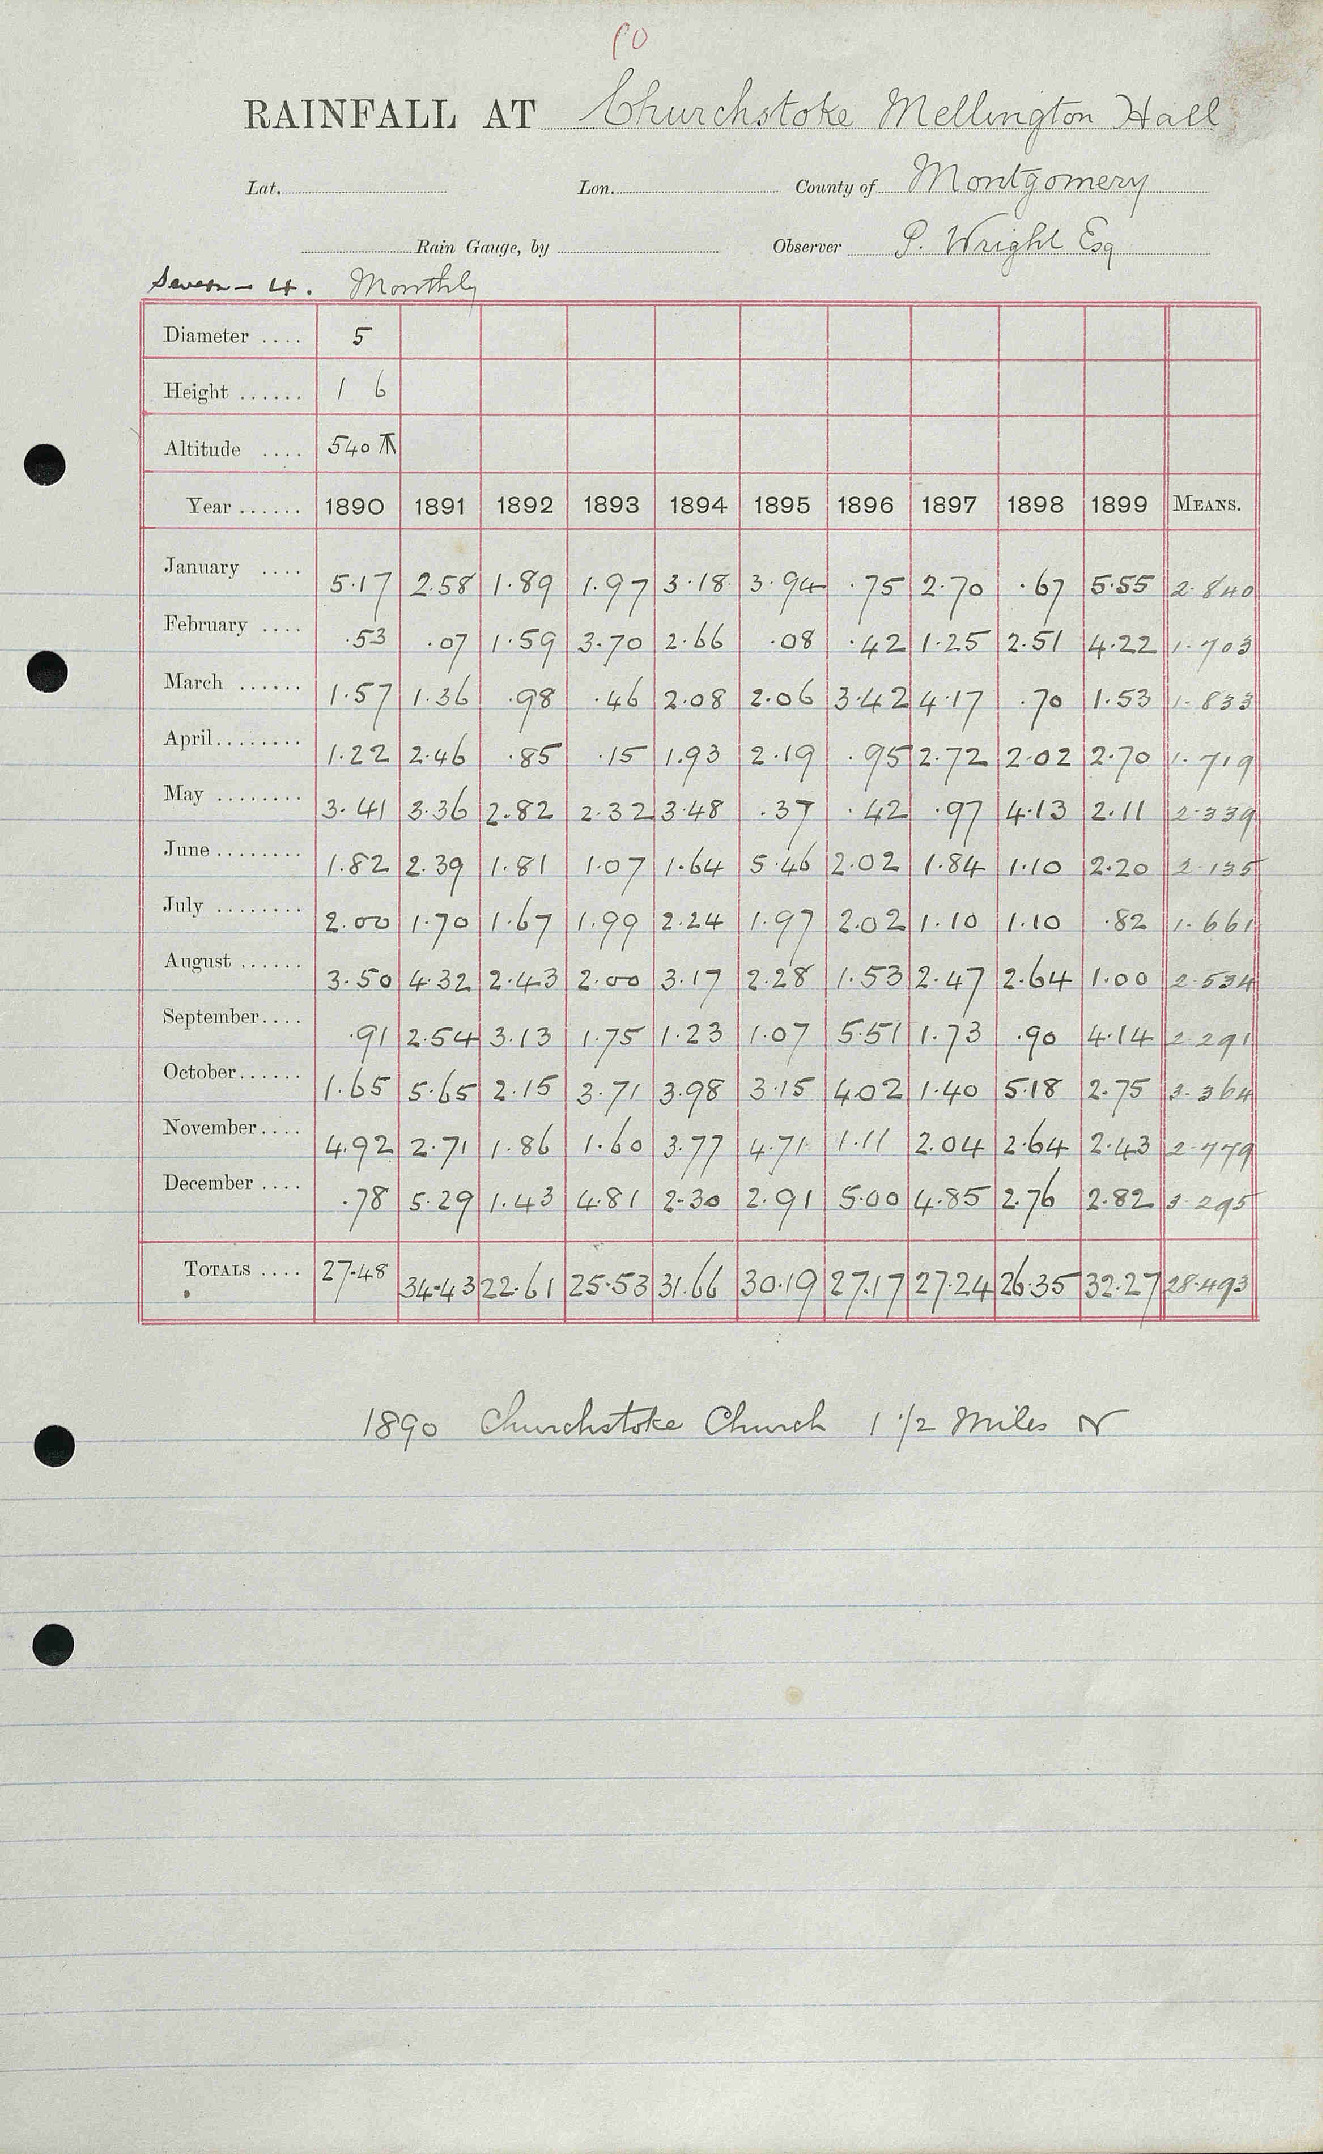 10
RAINFALL AT Churchstoke Mellington Hall
Lat. Lon. County of Montgomery
Rain Gauge, by Observer P. Wright Esq
Severn 4. Monthly
Diameter .... 5
Height ...... 1 6
Altitude .... 540
Year ...... 1890 1891 1892 1893 1894 1895 1896 1897 1898 1899 MEANS.
January .... 5.17 2.58 1.89 1.97 3.18 3.94 .75 2.70 .67 5.55 2.840
February .... .53 .07 1.59 3.70 2.66 .08 .42 1.25 2.51 4.22 1.703
March ...... 1.57 1.36 .98 .46 2.08 2.06 3.42 4.17 .70 1.53 1.833
April........ 1.22 2.46 .85 .15 1.93 2.19 .95 2.72 2.02 2.70 1.719
May ........ 3.41 3.36 2.82 2.32 3.48 .37 .42 .97 4.13 2.11 2.339
June........ 1.82 2.39 1.81 1.07 1.64 5.46 2.02 1.84 1.10 2.20 2.135
July ........ 2.00 1.70 1.67 1.99 2.24 1.97 2.02 1.10 1.10 .82 1.661
August ...... 3.50 4.32 2.43 2.00 3.17 2.28 1.53 2.47 2.64 1.00 2.534
September.... .91 2.54 3.13 1.75 1.23 1.07 5.51 1.73 .90 4.14 2.291
October...... 1.65 5.65 2.15 3.71 3.98 3.15 4.02 1.40 5.18 2.75 3.364
November.... 4.92 2.71 1.86 1.60 3.77 4.71 1.11 2.04 2.64 2.43 2.779
December .... .78 5.29 1.43 4.81 2.30 2.91 5.00 4.85 2.76 2.82 3.295
TOTALS .... 27.48 34.43 22.61 25.53 31.66 30.19 27.17 27.24 26.35 32.27 28.493
1890 Churchstoke Church 1 1/2 Miles N